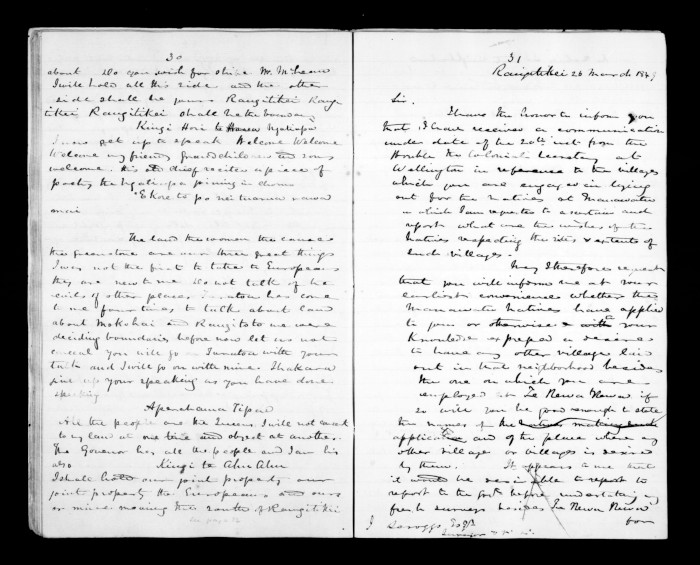 30
about do you wish for strife Mr. McLean
I will hold all this side and the other
side shall be yours Rangitikei Rang-
itikei Rangitikei shall be the boundary
Kingi Hori te Ngatiapa
I now get up & speak Welcome Welcome
Welcome my friends Grandchildren and sons
welcome. His chief recites a piece of
poetry the Ngatiapa joining in chorus
"E kore te po nei marama
The land the women the canoes
the greenstone are our three great things
I was not the first to take to Europeans
they are new to me do not talk of the
evils of other places has come
to me four times to talk about land
about Mokohai and Rangitoto we were
deciding boundaries before now let us not
conceal you will go with your
talk and I will go on with mine. Ihakara
give up your speaking as you have done
speaking
Aperahama Tipae
All the people are the Queens I will not consent
to my law at one time and object at another.
The Governor has all the people and I am his
also Kingi te Ahu Ahu
I shall hold our joint property our
joint property the Europeans and ours
or mine meaning the south of Rangitikei
31
Rangitikei 26 March 1849
Sir.
I have the honor to inform you
that I have received a communication
under date of the 20th inst from the
Honble the Colonial Secretary at
Wellington in reference to the villages
which you are engaged in laying
out for the natives at Manawatu
in which I am requested to ascertain and
report what are the wishes of the
Natives respecting the sites & extents of
such villages.
May I therefore request
that you will inform me at your
earliest convenience whether the
Manawatu Natives have applied
to you or otherwise with your
knowledge expressed a desire
to have any other village laid
out in that neighborhood besides
the one on which you are
employed at Te Rewa Rewa if
so will you be good enough to state
the names of the natives making such
application and of the place where any
other village or villages is desired
by them. It appears to me that
it would be desirable to report to
report to the Govt before undertaking any
fresh surveys besides Te Rewa Rewa
for
J Scroggs Esqre
Surveyor